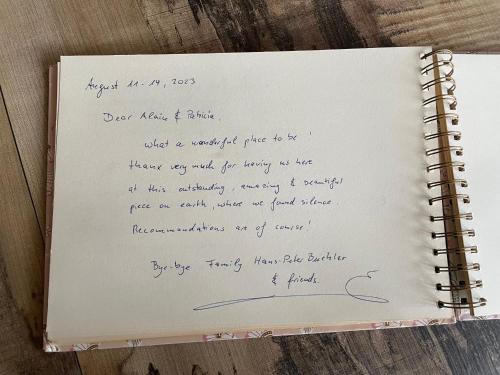 August 11-14, 2023
Dear Alain & Patricia,
What a wonderful place to be!
thanx very much for having us here
at this outstanding, amazing & beautiful
piece on earth, where we found silence.
Recommandations are of course!
Bye-bye Family Hans-Peter Buchler
& friends.